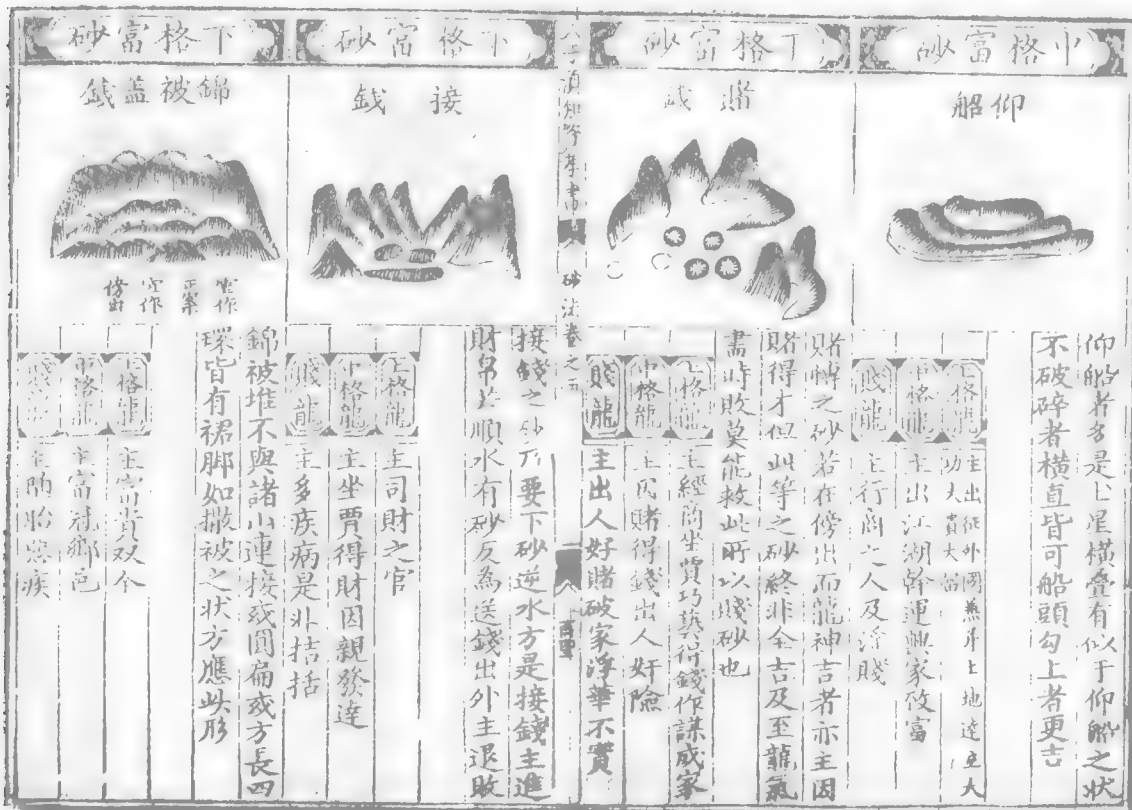 中格富砂
仰船
仰船者名是七星橫疊有似于仰船之狀
不破碎者橫直皆可船頭勾上者更吉
上格龍
主出征外國燕斗上地達更大
功大貴大富
中格龍
主出江湖幹運興家致富
賤龍
主行商之人及浮賤
下格富砂
賭錢
賭博之砂若在傍出而龍神吉者亦主因
賭得才但此等之砂終非全吉及至龍氣
盡時敗莫能救此所以賤砂也
上格龍
主經商坐賈巧藝得錢作謀成家
中格龍
主因賭得錢出人奸險
賤龍
主出人好賭破家浮華不實
人子須知孝書
砂法卷之五
下格富砂
接錢
接錢之砂乃要下砂逆水方是接錢主進
財帛若順水有砂反為送錢出外主退敗
上格龍
主司財之官
中格龍
主坐賈得財因親發達
賤龍
主多疾病是非括括
下格富砂
錦被蓋錢
宜作
正案
宜作
錦被堆不與諸小連接或圓扁或方長四
環皆有裙脚如撒被之状方應此形
上格龍
主富貴双全
中格龍
主富冠鄉邑
主墮胎殘疾